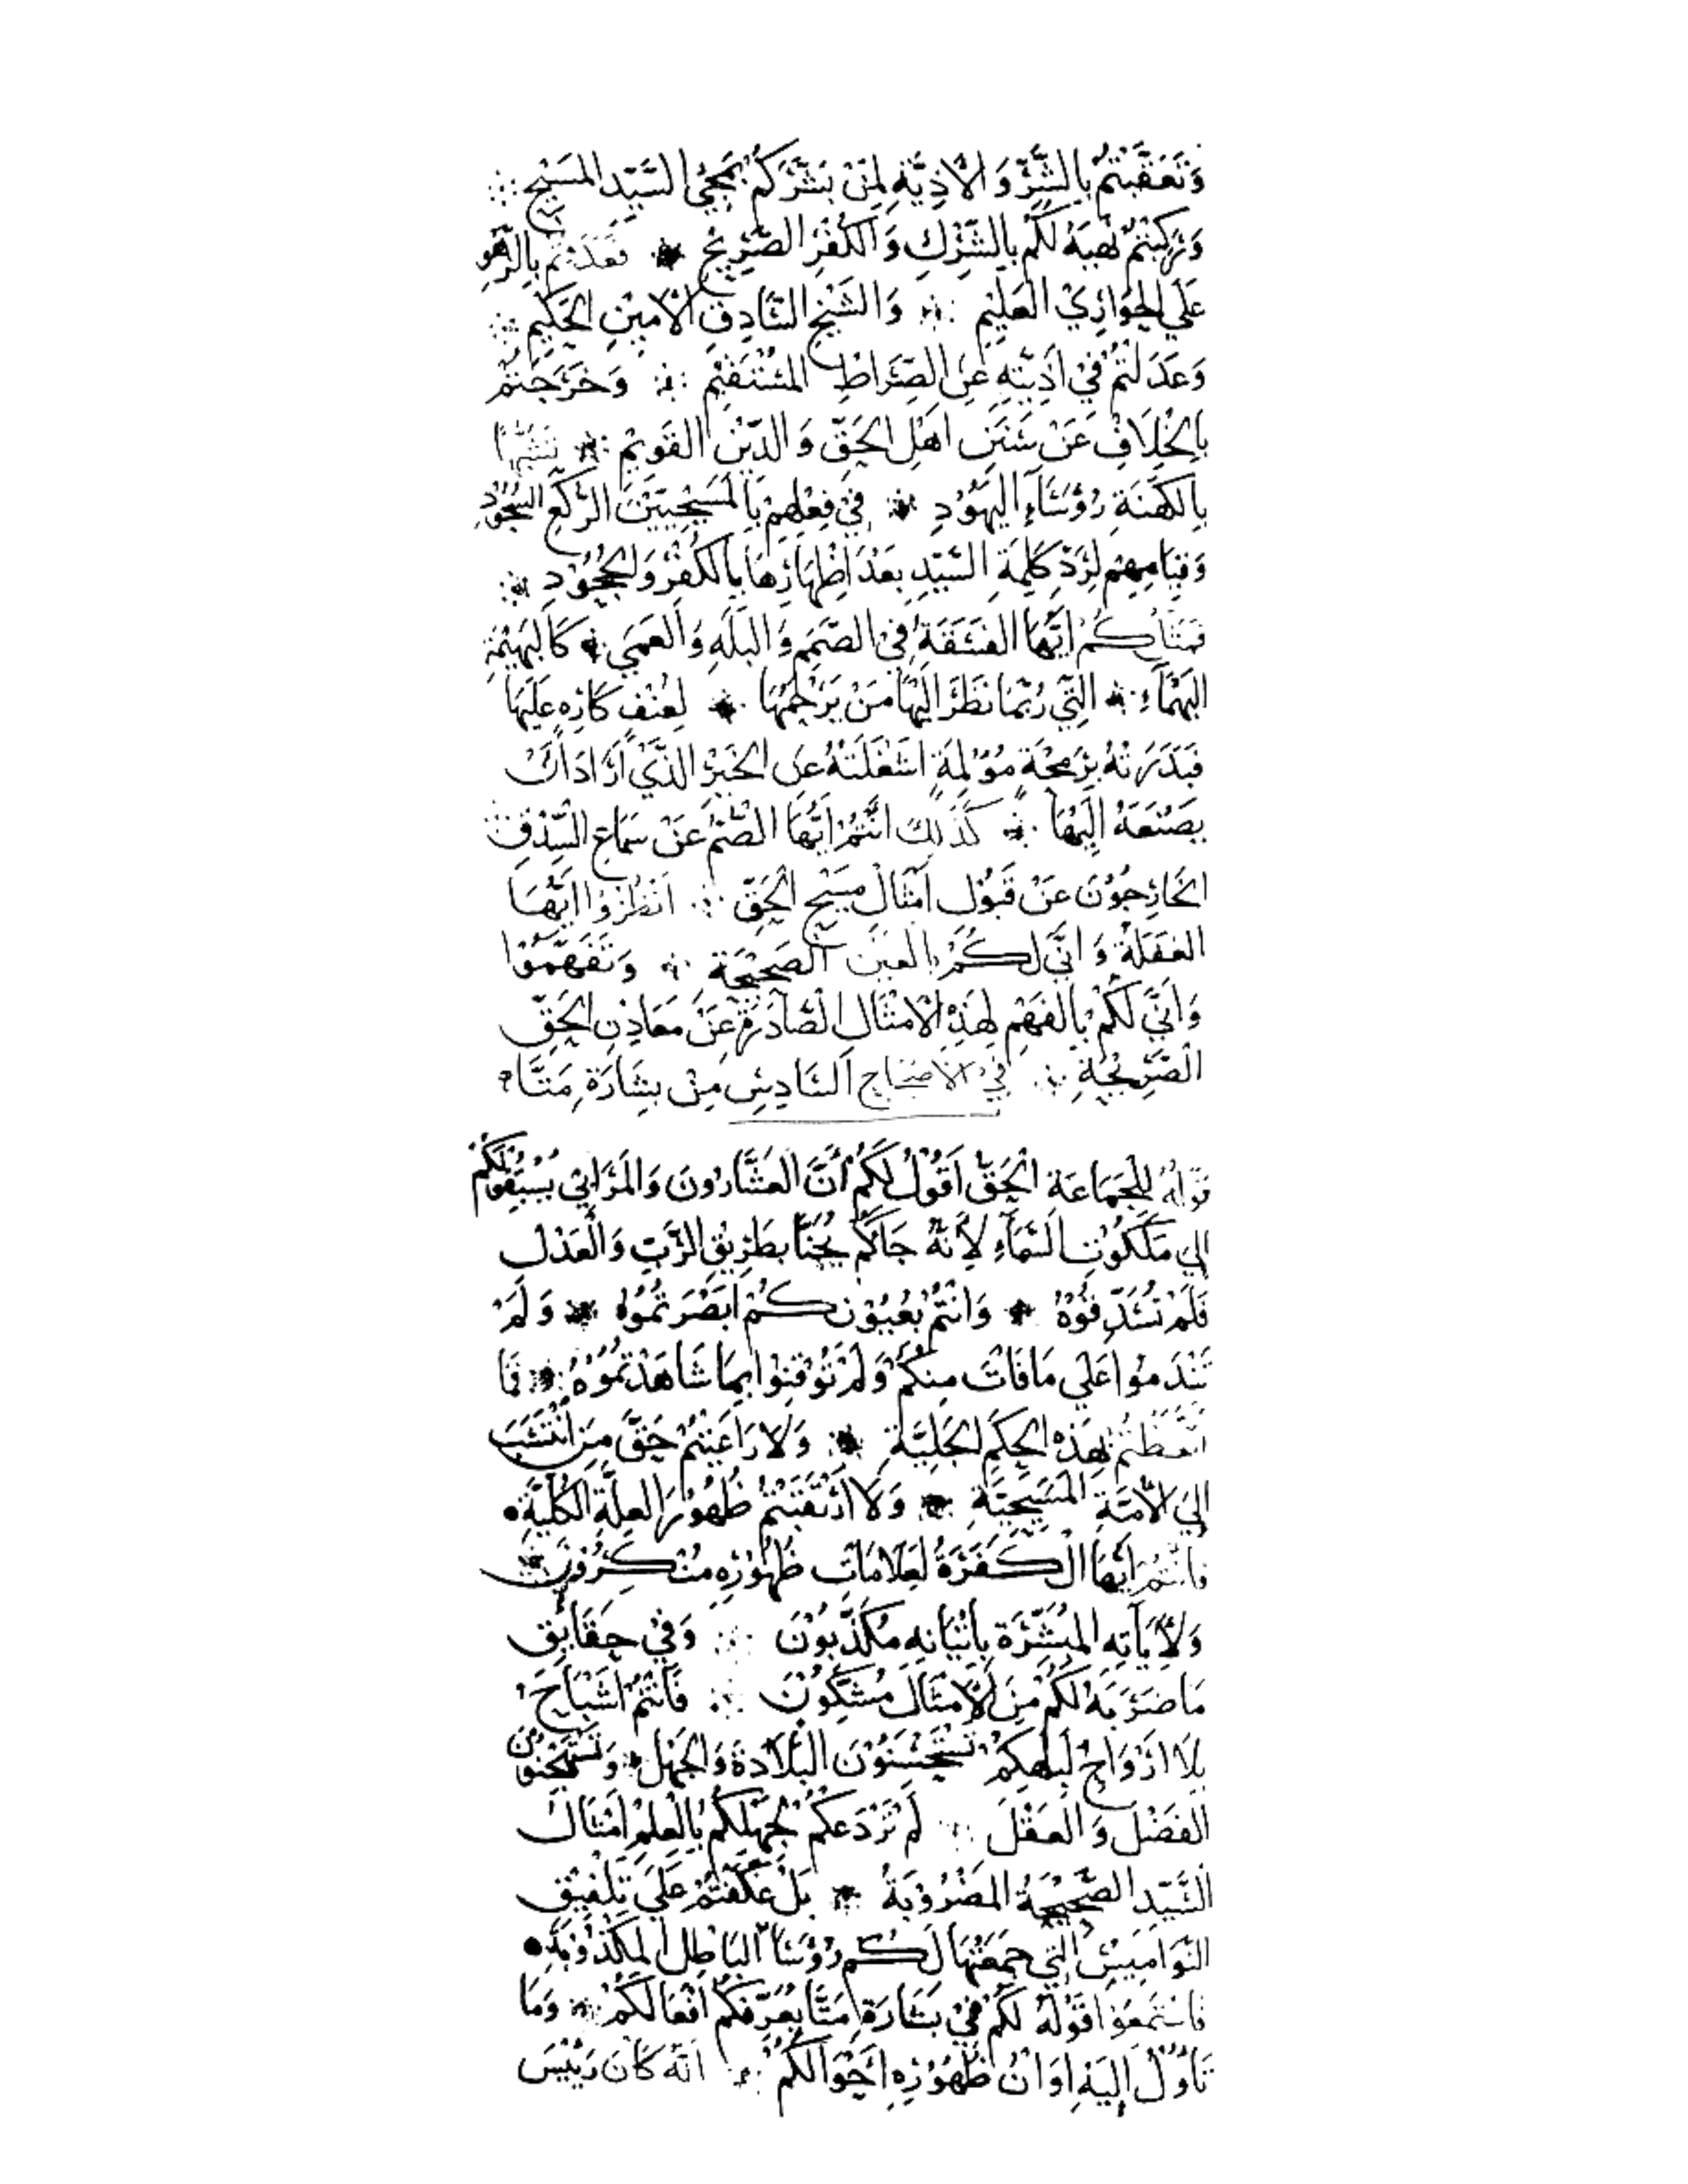 وَتَعَقَّبْتُمْ بِالشَّرِّ وَالْاَذِيَّةِ لِمَنْ بَشَّرَكُمْ بِمَجِيْ السَّيِّدِ المَسِيْحِ
وَتَرَكْتُمْ لَكُمْ بِالشِّرْكِ وَالْكُفْرِ الصَّرِيْحِ
عَلَي الحَوَارِيْ العَلِيْمِ وَالشَّيْخِ السَّادِقِ الْاَمِيْنِ الحَكِيْمِ
وَعَدَلْتُمْ فِيْ اَذِيَّتِهِ عَنِ الصِّرَاطِ المُسْتَقِيْمِ وَخَرَجْتُمْ
بِالخِلَافِ عَنْ سَنَنِ اَهْلِ الحَقِّ وَالدِّيْنِ القَوِيْمِ
بِالكَهَنَةِ رُوَسَآءِ اليَهُوْدِ فِيْ فِعْلِهِمْ بِالمَسِيْحِيِّيْنَ الرُّكَّعِ السُّجُوْدِ
وَقِيَامِهِمْ لِرَدِّ كَلِمَةِ السَّيِّدِ بَعْدَ اِظْهَارِهَا بِالكُفْرِ وَالجُحُوْدِ
اَيُّهَا الفَسَقَةُ فِيْ الصَّمَمِ وَالبَلَهِ وَالعَمَي كَالبَهِيْمَةِ
البَهْمَآءِ الَّتِي رُبَّمَا نَظَرَ اِلَيْهَا مَنْ يَرْحَمُهَا لِعُنْفِ كَارِهِ عَلَيْهَا
فَبَدَرَتْهُ بِرَمْحَةٍ مُوْلِمَةٍ اشْغَلَتْهُ عَنِ الخَيْرِ الَّذِي اَرَادَ اَنْ
يَصْنَعَهُ اِلَيْهَا كَذَلِكَ انْتُمْ اَيُّهَا الصُّمُّ عَنْ سَمَاعِ السِّدْقِ
الخَارِجُوْنَ عَنْ قَبُوْلِ اَمْثَالِ مَسِيْحِ الحَقِّ انْظُرُوا اَيُّهَا
الغَفَلَةُ وَاَنَّي لَكُمْ بِالعَيْنِ الصَّحِيْحَةِ وَتَفَهَّمُوْا
وَاَنَّي لَكُمْ بِالفَهْمِ لِهَذِهِ الْاَمْثَالِ الصَّادِرَةِ عَنْ مَعَادِنِ الحَقِّ
الصَّرِيْحَةِ فِيْ الْاَصْحَاحِ السَّادِسِ مِنْ بِشَارَةِ مَتَّا
قَوْلُهُ لِلْجَمَاعَةِ الْحَقَّ اَقُوْلُ لَكُمْ أَنَّ العَشَّارُونَ وَالمَرَائِيْ يَسْبِقُوْكُمْ
اِلي مَلَكُوْتِ السَّمَآءِ لِاَنَّهُ جَاكُمْ يُحَنَّا بِطَرِيْقِ الرَّبِّ وَالْعَدْلِ
فَلَمْ تُسَدِّقُوْهُ وَانْتُمْ بِعُيُوْنِكُمْ اَبْصَرْتُمُوْهُ وَلَمْ
تَنْدَمُوْا عَلَي مَا فَاتَ مِنْكُمْ وَلَمْ تُوْقِنُوْا بِمَا شَاهَدْتُمُوْهُ فَمَا
اتَّعَظْتُمْ بِهَذِهِ الحِكَمِ الجَلِيَّةِ وَلَا رَاعَيْتُمْ حَقَّ مَنِ انْتَسَبَ
اِلَيَ الْاُمَّةِ المَسِيْحِيَّةِ وَلَا ارْتَقَبْتُمْ ظُهُوْرَ العِلَّةِ الكُلِّيَّةِ
فَانْتُمْ اَيُّهَا الْكَفَرَةُ لِعَلَامَاتِ ظُهُوْرِهِ مُنْكِرُوْنَ
وَلِاَيَاتِهِ المُبَشِّرَةِ بِاِتْيَانِهِ مُكَذِّبُوْنَ وَفِيْ حَقَايِقِ
مَا ضَرَبَهُ لَكُمْ مِنَ الْاَمْثَالِ مُشَكُّوْنَ فَانْتُمْ اَشْبَاحٌ
بِلَا اَرْوَاحٍ لِبَلَهِكُمْ تَسْتَحْسِنُوْنَ البَلَادَةَ وَالجَهْلَ وَتَسْتَهْجِنُوْنَ
الفَضْلَ وَالعَقْلَ لَمْ تَرْدَعْكُمْ لِجَهْلِكُمْ بِالْعِلْمِ اَمْثَالُ
السَّيِّدِ الصَّحِيْحَةُ المَضْرُوْبَةُ بَلْ عَكَفْتُمْ عَلَيَ تَلْفِيْقِ
النَّوَامِيْسِ الَّتِي جَمَعَتْهَا لَكُمْ رُوَسَآءُ البَاطِلِ المَكْذُوْبَةِ
فَاسْتَمِعُوْا قَوْلَهُ لَكُمْ فِيْ بِشَارَةِ مَتَّا يُعَرِّفُكُمْ اَفْعَالَكُمْ وَمَا
تَاُوْلُ اِلَيْهِ اَوَانَ ظُهُوْرِهِ اَحْوَالُكُمْ اَنَّهُ كَانَ رَيِيْسَ